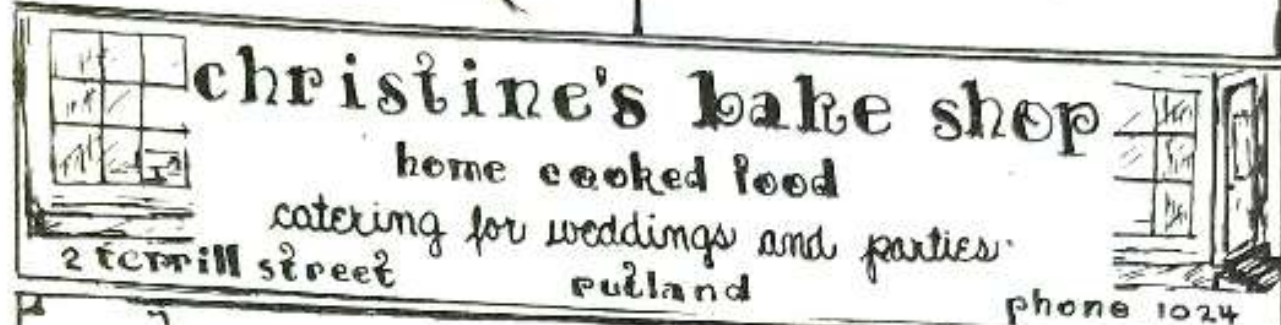 christine's bake shop
home cooked food
catering for weddings and parties.
2 terrill street
rutland
phone 1024